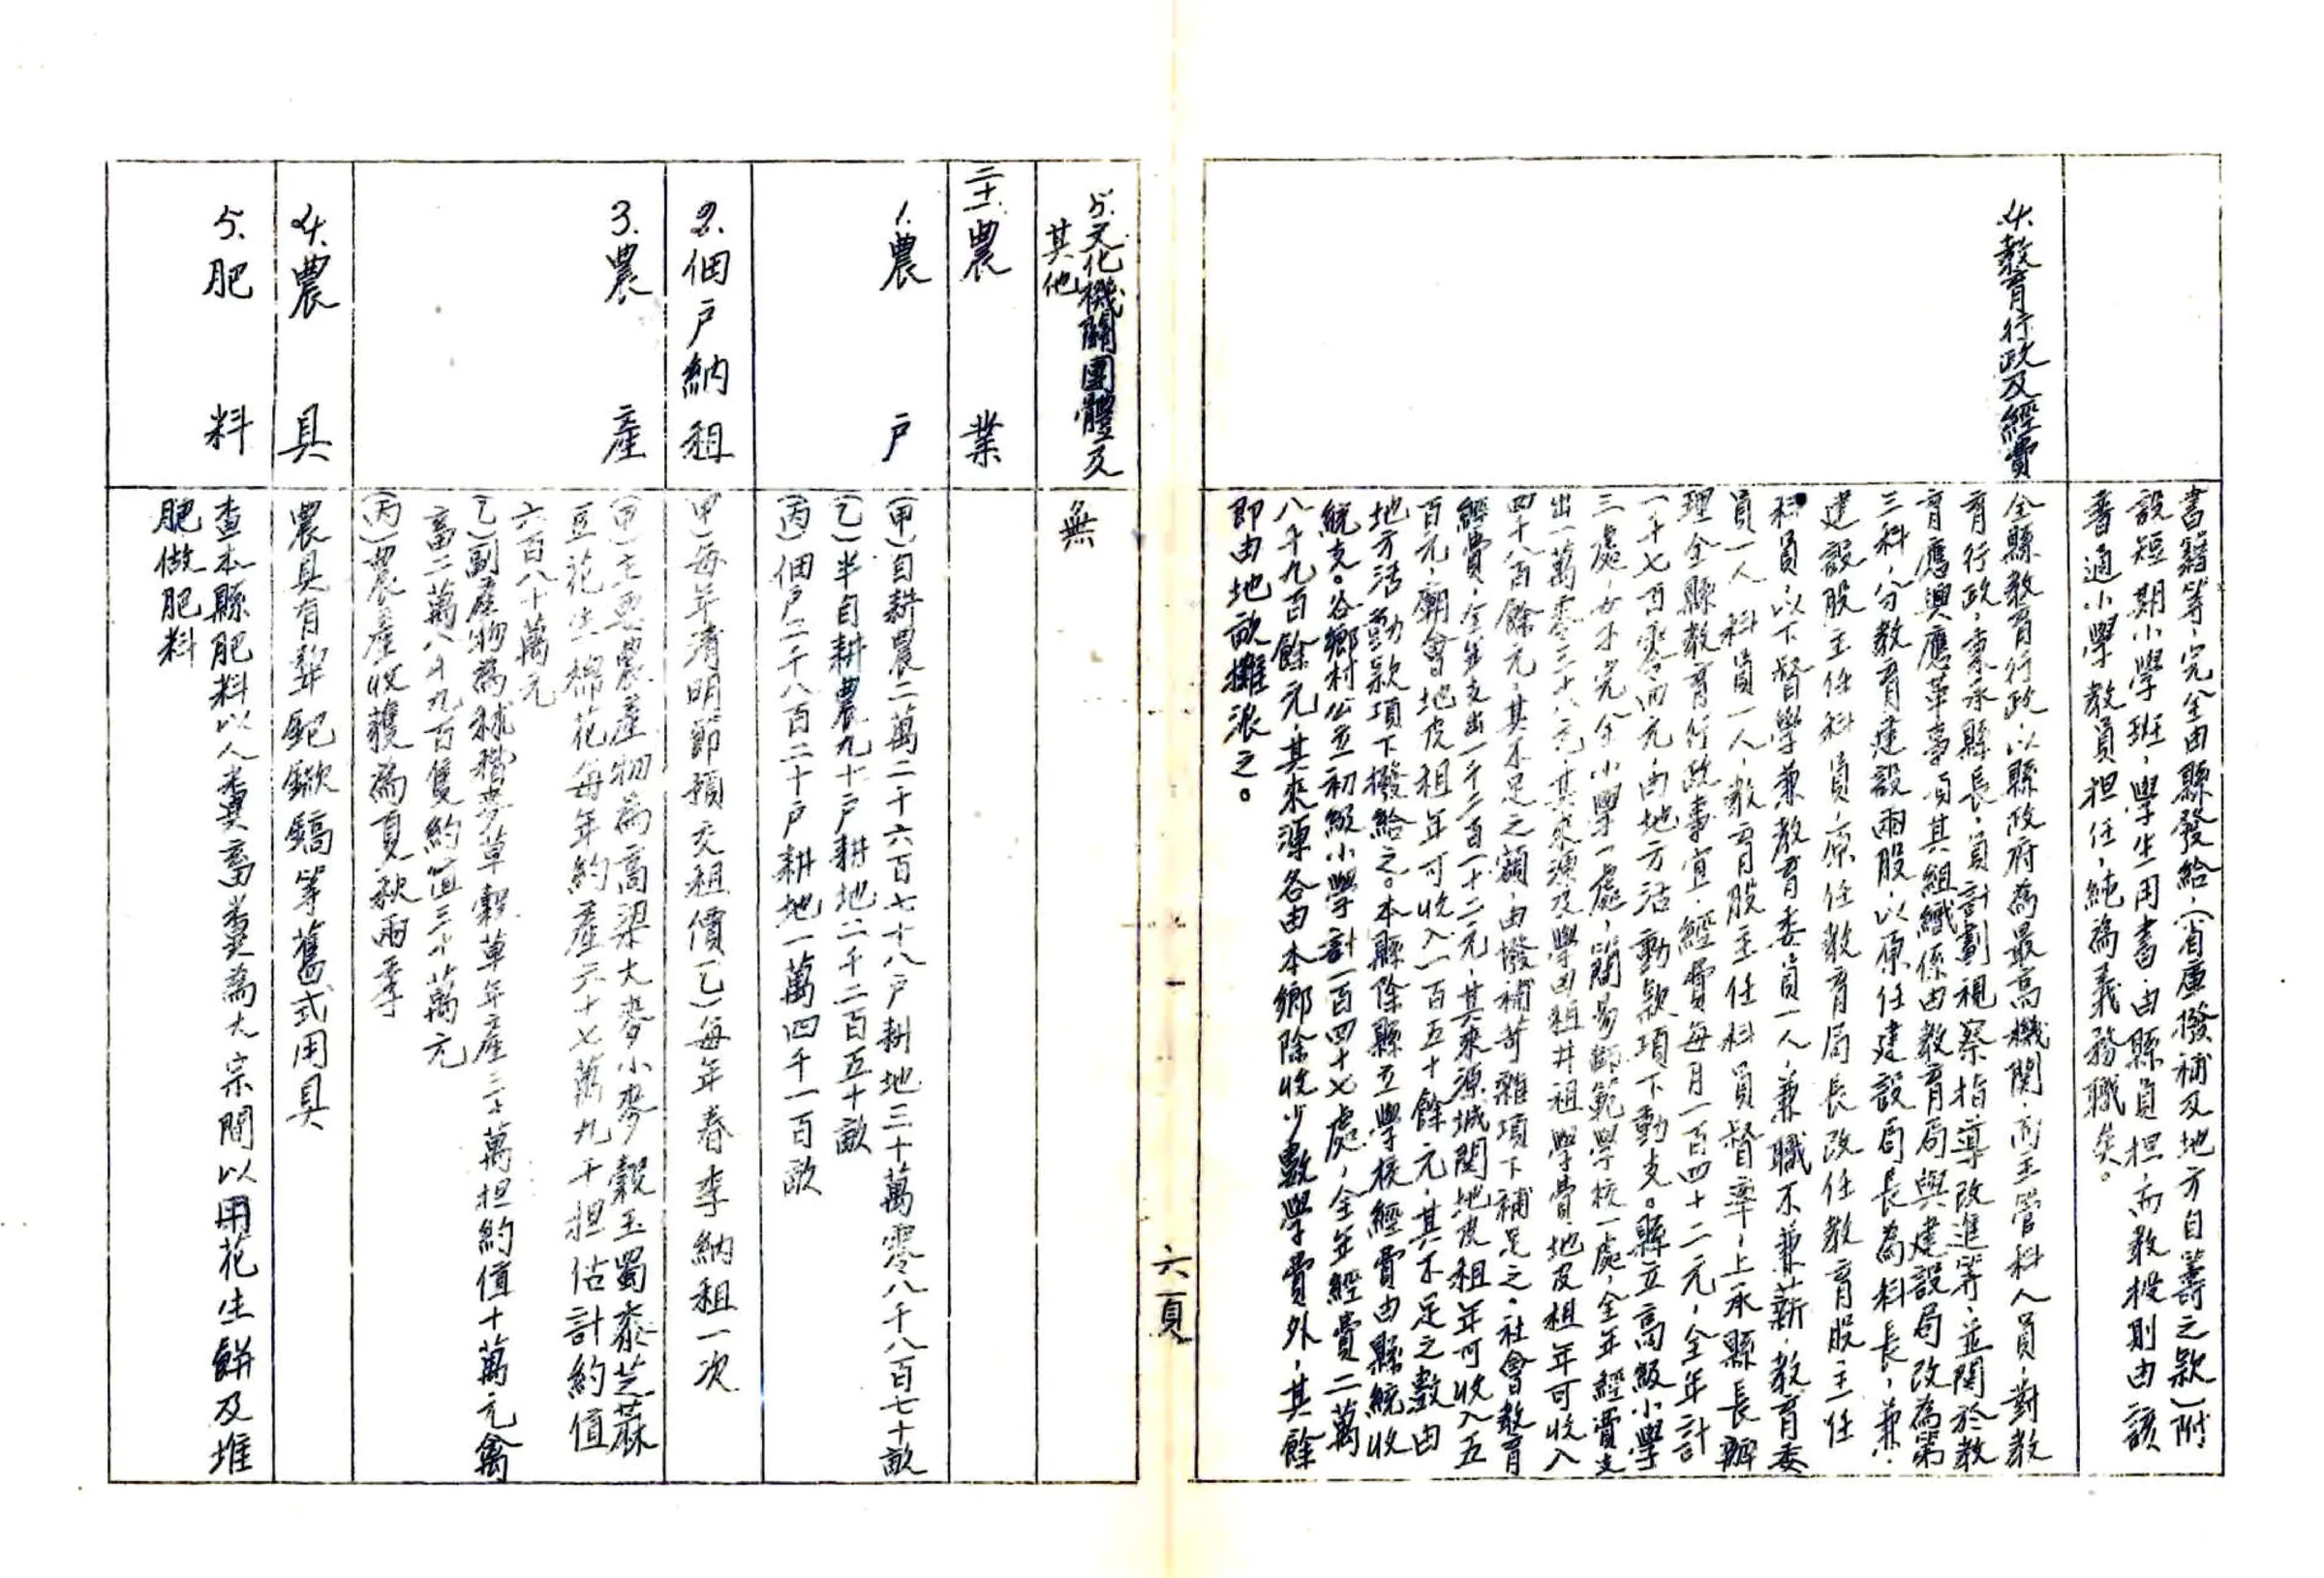 書籍等，完全由縣發給，（省庫撥補及地方自籌之款）附
設短期小學班，學生用書，由縣負担，而教授則由該
普通小學教員担任，純為義務職矣。
4.教育行政及經費
全縣教育行政，以縣政府為最高機関，而主管科人員，對教
育行政，秉承縣長，負計劃視察指導改進等，並関於教
育應興應革事項其組織係由教育局與建設局改為第
三科，分教育建設兩股，以原任建設局長為科長，兼
建設股主任科員，原任教育局長改任教育股主任
科員，以下督學兼教育委員一人，兼職不兼薪，教育委
員一人，科員一人，教育股主任科員督率，上承縣長辦
理全縣教育行政事宜，經費每月一百四十二元，全年計
一千七百零四元，由地方活動款項下動支。縣立高級小學
三處，女子完全小學一處，簡易師範學校一處，全年經費支
出一萬零三十八元，其來源及學田租井租學費地皮租年可收入
四千八百餘元，其不足之額，由撥補苛雜項下補足之。社會教育
經費，全年支出一千二百一十二元，其來源城関地皮租年可收入五
百元，廟會地皮租年可收入一百五十餘元，其不足之數由
地方活動款項下撥給之。本縣除縣立學校經費由縣統收
統支。各鄉村公立初級小學計一百四十七處，全年經費二萬
八千九百餘元，其來源各由本鄉除收少數學費外，其餘
即由地畝攤派之。
六頁
5.文化機關團體及
其他
無
二十一農業
1.農戶
（甲）自耕農二萬二千六百七十八戶耕地三十萬零八千八百七十畝
（乙）半自耕農九十戶耕地二千二百五十畝
（丙）佃戶二千八百二十戶耕地一萬四千一百畝
2.佃戶納租
甲）每年清明節預交租價（乙）每年春季納租一次
3.農產
（甲）主要農產物為高梁大麥小麥穀玉蜀黍芝蔴
豆花生棉花每年約產六十七萬九千担估計約值
六百八十萬元
（乙）副產物為秫稭麥草穀草年產三十萬担約值十萬元禽
畜二萬八千九百隻約值三十萬元
（丙）農產收穫為夏秋兩季
4.農具
農具有犂鈀鍁鎬等舊式用具
5.肥料
查本縣肥料以人糞畜糞為大宗間以用花生餅及堆
肥做肥料